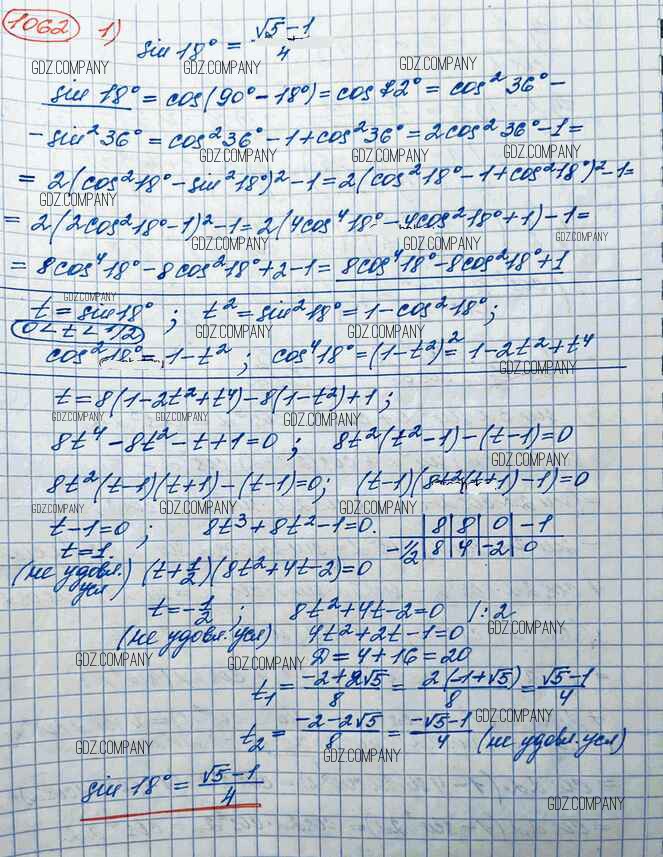 1062 1) sin 18° = (√5 - 1)/4
GDZ.COMPANY GDZ.COMPANY GDZ.COMPANY
sin 18° = cos(90° - 18°) = cos 72° = cos² 36° -
GDZ.COMPANY GDZ.COMPANY GDZ.COMPANY
- sin² 36° = cos² 36° - 1 + cos² 36° = 2cos² 36° - 1 =
GDZ.COMPANY GDZ.COMPANY
= 2(cos² 18° - sin² 18°)² - 1 = 2(cos² 18° - 1 + cos² 18°)² - 1 =
GDZ.COMPANY
= 2(2cos² 18° - 1)² - 1 = 2(4cos⁴ 18° - 4cos² 18° + 1) - 1 =
GDZ.COMPANY GDZ.COMPANY GDZ.COMPANY
= 8cos⁴ 18° - 8cos² 18° + 2 - 1 = 8cos⁴ 18° - 8cos² 18° + 1
GDZ.COMPANY
t = sin 18° ; t² = sin² 18° = 1 - cos² 18° ;
0 < t < 1/2
GDZ.COMPANY GDZ.COMPANY GDZ.COMPANY
cos² 18° = 1 - t² ; cos⁴ 18° = (1 - t²)² = 1 - 2t² + t⁴
GDZ.COMPANY
t = 8(1 - 2t² + t⁴) - 8(1 - t²) + 1 ;
GDZ.COMPANY GDZ.COMPANY GDZ.COMPANY
8t⁴ - 8t² - t + 1 = 0 ; 8t²(t² - 1) - (t - 1) = 0
GDZ.COMPANY
8t²(t - 1)(t + 1) - (t - 1) = 0 ; (t - 1)(8t²(t + 1) - 1) = 0
GDZ.COMPANY GDZ.COMPANY GDZ.COMPANY
t - 1 = 0 ; 8t³ + 8t² - 1 = 0. | 8 | 8 | 0 | -1
t = 1. -1/2 | 8 | 4 | -2 | 0
(не удовл. усл) (t + 1/2)(8t² + 4t - 2) = 0
t = -1/2 ; 8t² + 4t - 2 = 0 |: 2
GDZ.COMPANY
(не удовл. усл) 4t² + 2t - 1 = 0
GDZ.COMPANY GDZ.COMPANY
D = 4 + 16 = 20
GDZ.COMPANY
t₁ = (-2 + 2√5)/8 = 2(-1 + √5)/8 = (√5 - 1)/4
GDZ.COMPANY
t₂ = (-2 - 2√5)/8 = (-√5 - 1)/4 (не удовл. усл)
GDZ.COMPANY GDZ.COMPANY
sin 18° = (√5 - 1)/4
GDZ.COMPANY